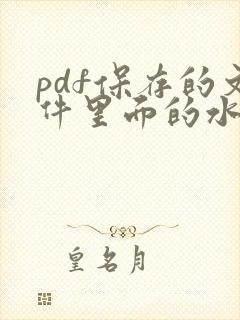 pdf保存的文
件里而的水
皇名月